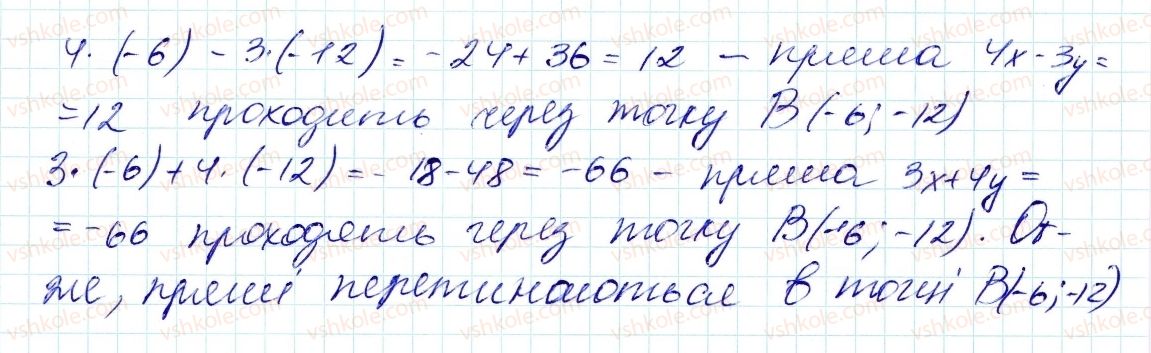 4·(-6) - 3·(-12) = -24 + 36 = 12 — пряма 4x - 3y =
= 12 проходить через точку B(-6; -12)
3·(-6) + 4·(-12) = -18 - 48 = -66 - пряма 3x + 4y =
= -66 проходять через точку B(-6; -12). От-
же, прямі перетинаються в точці B(-6; -12)